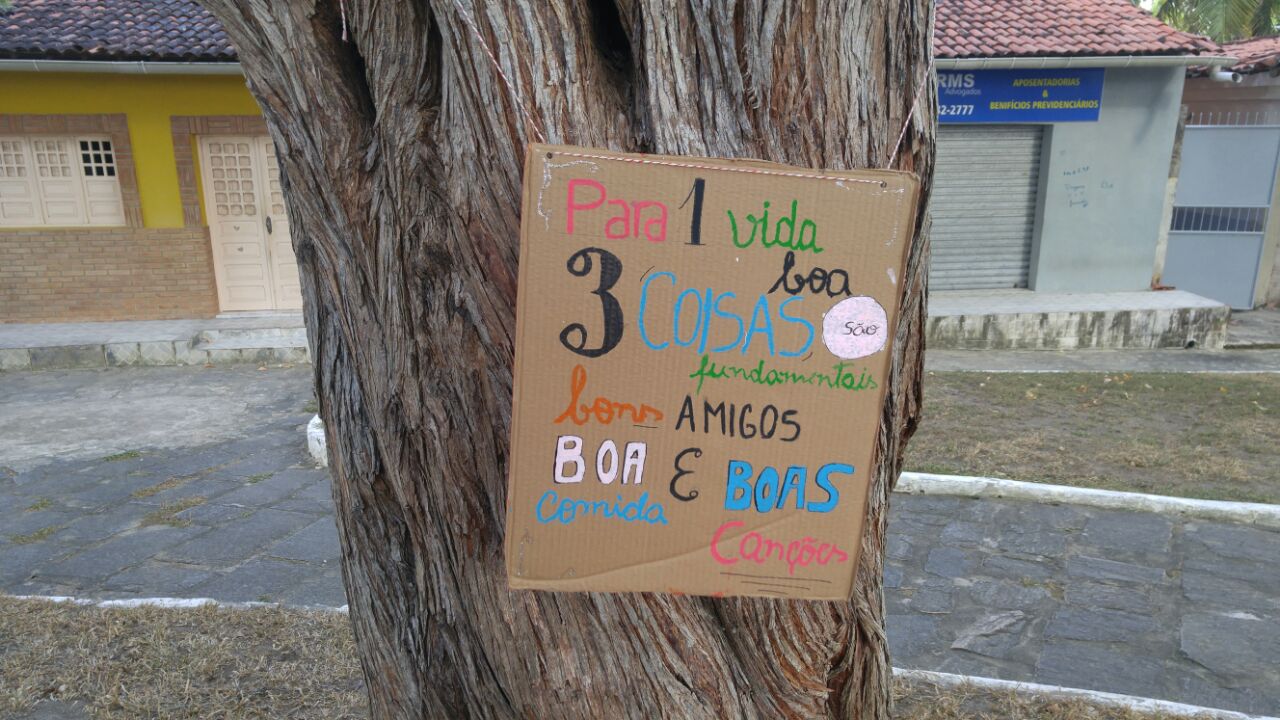 Para 1 vida
boa
3 COISAS são
fundamentais
bons AMIGOS
BOA E BOAS
Comida
Canções
RMS
Advogados
32-2777
APOSENTADORIAS
&
BENIFÍCIOS PREVIDENCIÁRIOS